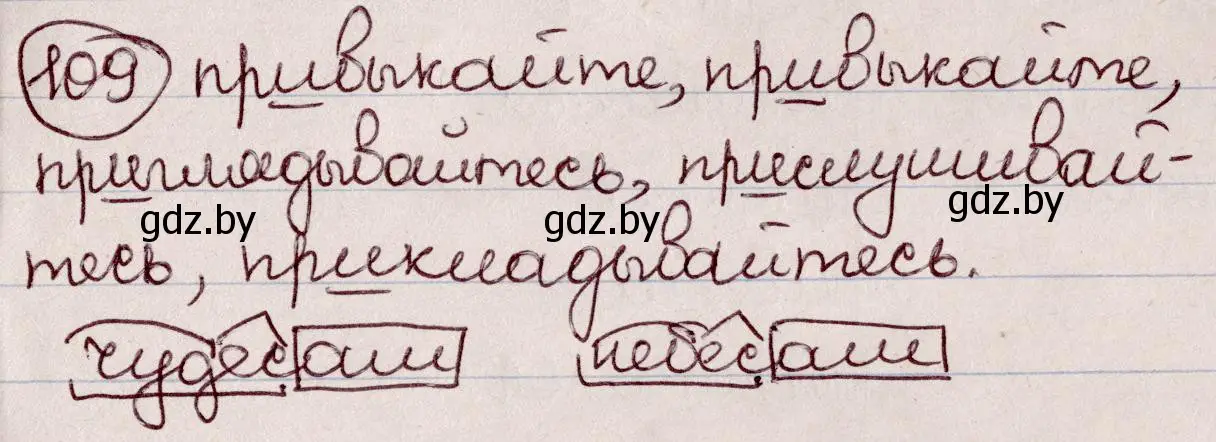 109 привыкайте, привыкайте,
приглядывайтесь, прислушивай-
gdz.by gdz.by gdz.by
тесь, прикладывайтесь.
чудесами небесами